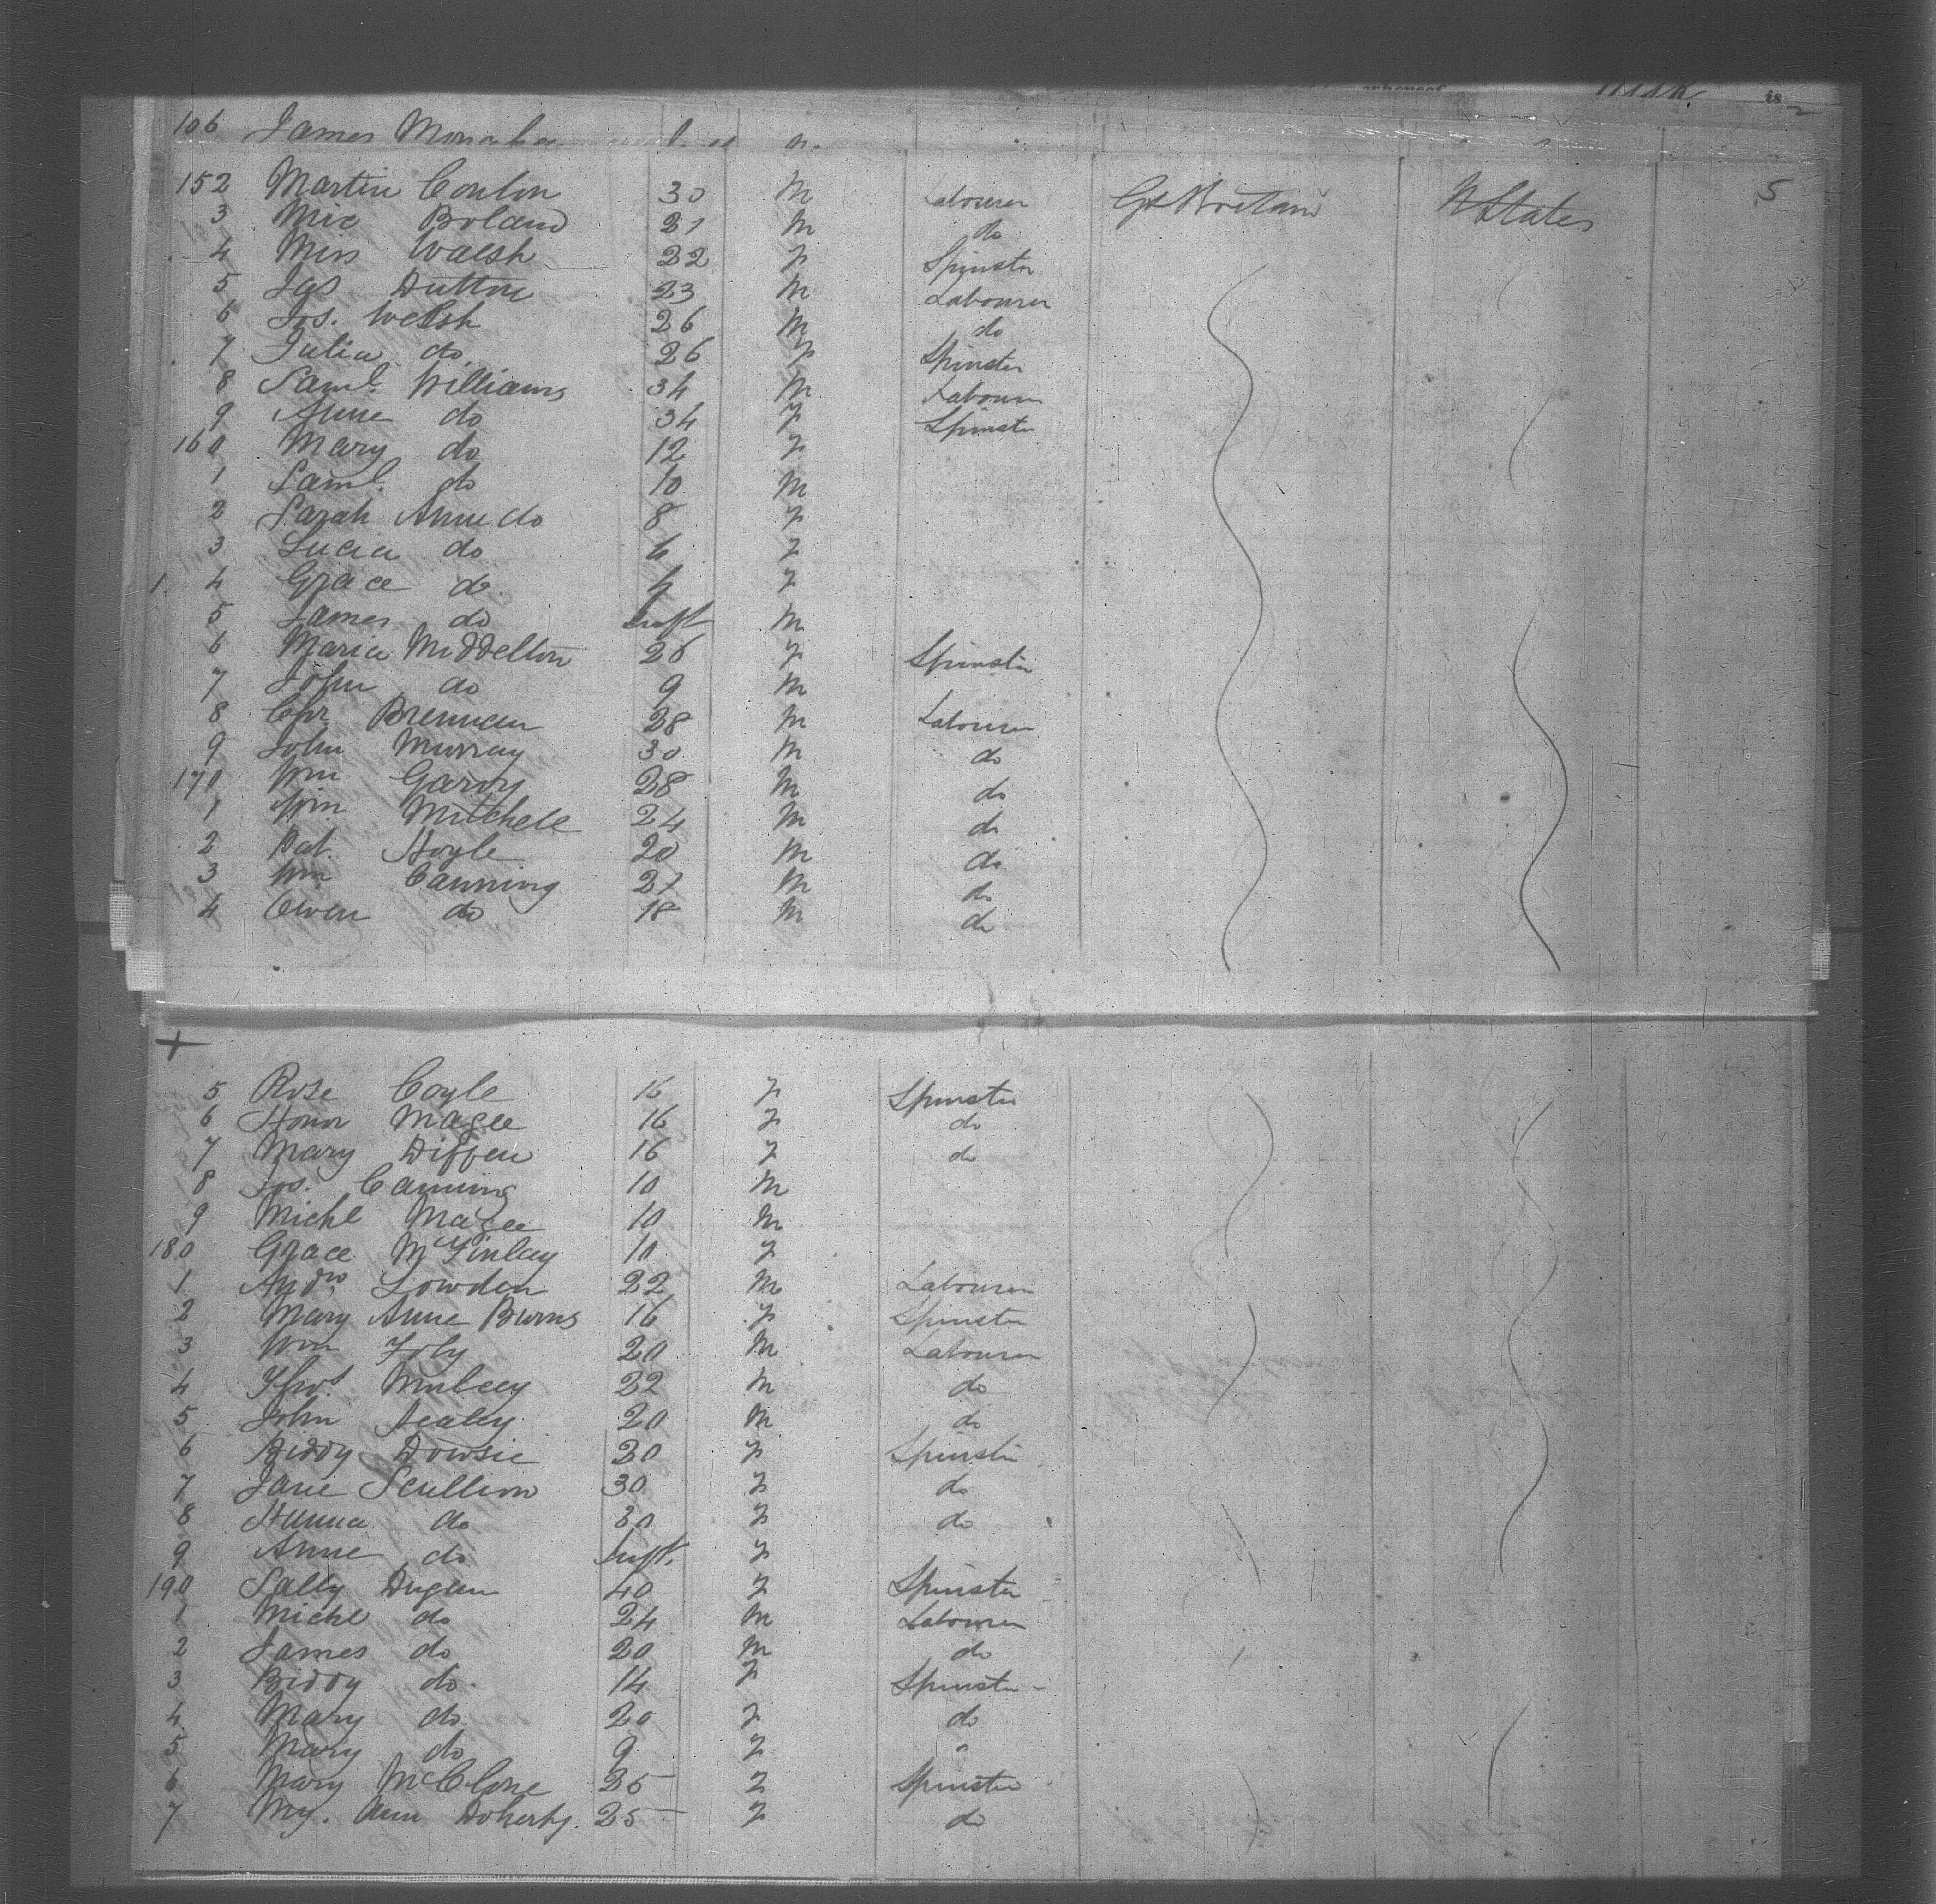 is
106 James Monaha
152 Martin Conlon 30 M Labourer Gt Britain U States 5
3 Mic Boland 21 M do
4 Miss Walsh 22 F Spinster
5 Jas Dutton 23 M Labourer
6 Jos. Welsh 26 M do
7 Julia do 26 F Spinster
8 Saml. Williams 34 M Labourer
9 Anne do 34 F Spinster
160 Mary do 12 F
1 Saml. do 10 M
2 Sarah Anne do 8 F
3 Lucia do 6 F
4 Grace do. 4 F
5 James do Inft M
6 Maria Middelton 26 F Spinster
7 John do 9 M
8 Chr Brennan 28 M Labourer
9 John Murray 30 M do
170 Wm Garvy 28 M do
1 Wm Mitchell 24 M do
2 Pat. Hoyle 20 M do
3 Wm Canning 21 M do
4 Owen do 18 M do
5 Rose Coyle 16 F Spinster
6 Honor Magee 16 F do
7 Mary Diffen 16 F do
8 Jos. Canning 10 M
9 Michl Magee 10 M
180 Grace McGinlay 10 F
1 Andw Lowden 22 M Labourer
2 Mary Anne Burns 16 F Spinster
3 Wm Foly 20 M Labourer
4 Thos. 22 M do
5 John Healey 20 M do
6 Biddy Dowsie 20 F Spinster
7 Jane Scullion 30 F do
8 Hanna do 30 F do
9 Anne do Inft. F
190 Sally Dugan 40 F Spinster
1 Michl do 24 M Labourer
2 James do 20 M do
3 Biddy do. 14 F Spinster
4 Mary do 20 F do
5 Mary do 9 F
6 Mary McClone 25 F Spinster
7 My. Ann Doherty. 25 F do